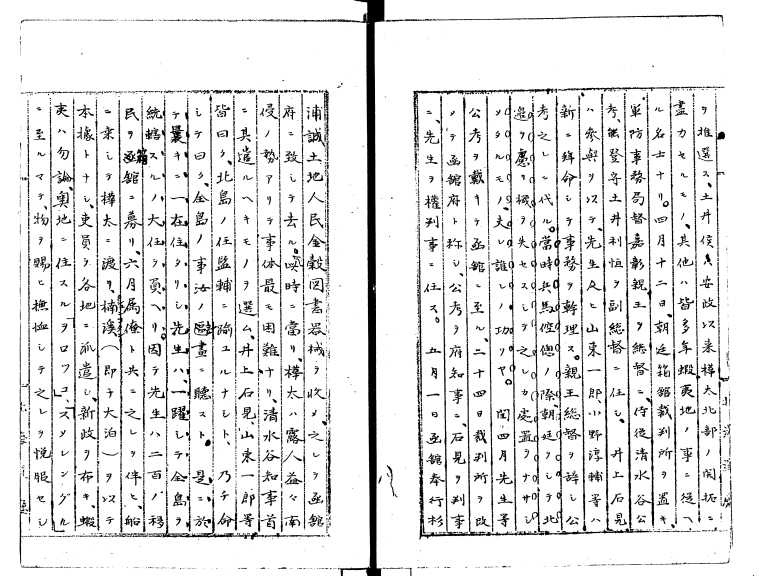 ヲ推選ス、土井侯ハ安政以来樺太北部ノ開拓ニ
盡力セルモノ、其他ハ皆多年蝦夷地ノ事ニ従ヘ
ル名士ナリ。四月十二日、朝廷箱館裁判所ヲ置キ、
軍防事務局督嘉彰親王ヲ総督ニ、侍従清水谷公
考、能登守土井利恒ヲ副総督ニ任シ、井上石見
ハ参與ヲ以テ、先生及ヒ山東一郎小野淳輔等ハ
新ニ拜命シテ事務ヲ幹理ス。親王総督ヲ辞シ公
考之レニ代ル。當時兵馬倥偬ノ際朝廷ヲシテ北
邊ヲ慮リ機ヲ失セスシテ之レカ處置ヲナサシ
メタルモノ、夫レ誰レノ功ソヤ。閏四月先生等
公考ヲ戴キテ函館ニ至ル、二十四日裁判所ヲ改
メテ函館府ト称シ、公考ヲ府知事ニ、石見ヲ判事
ニ、先生ヲ權判事ニ任ス。五月一日函館奉行杉
浦誠土地人民金穀図書器械ヲ收メ、之レヲ函館
府ニ致シテ去ル。此時ニ當リ、樺太ハ露人益々南
侵ノ勢アリテ事体最モ困難ナリ、清水谷知事首
ニ其遣ルヘキモノヲ選ム、井上石見、山東一郎等
皆曰ク、北島ノ任監輔ニ踰ユルナシト、乃チ命
シテ曰ク、全島ノ事汝ノ區畫ニ聴スト。是ニ於
テ曩キニ一在住タリシ先生ハ、一躍シテ全島ヲ
統轄スルノ大任ヲ負ヘリ。因テ先生ハ二百ノ移
民ヲ函館ニ募リ、六月属僚ト共ニ之レヲ伴ヒ、船
ニ乗シテ樺太ニ渡リ、楠溪(即チ大泊)ヲ以テ
本據トナシ、吏員ヲ各地ニ派遣シ、新政ヲ布キ、蝦
夷ハ勿論、奥地ニ住スルヲロツコ、スメレングル
ニ至ルマテ、物ヲ賜ヒ撫恤シテ之レヲ悦服セシ